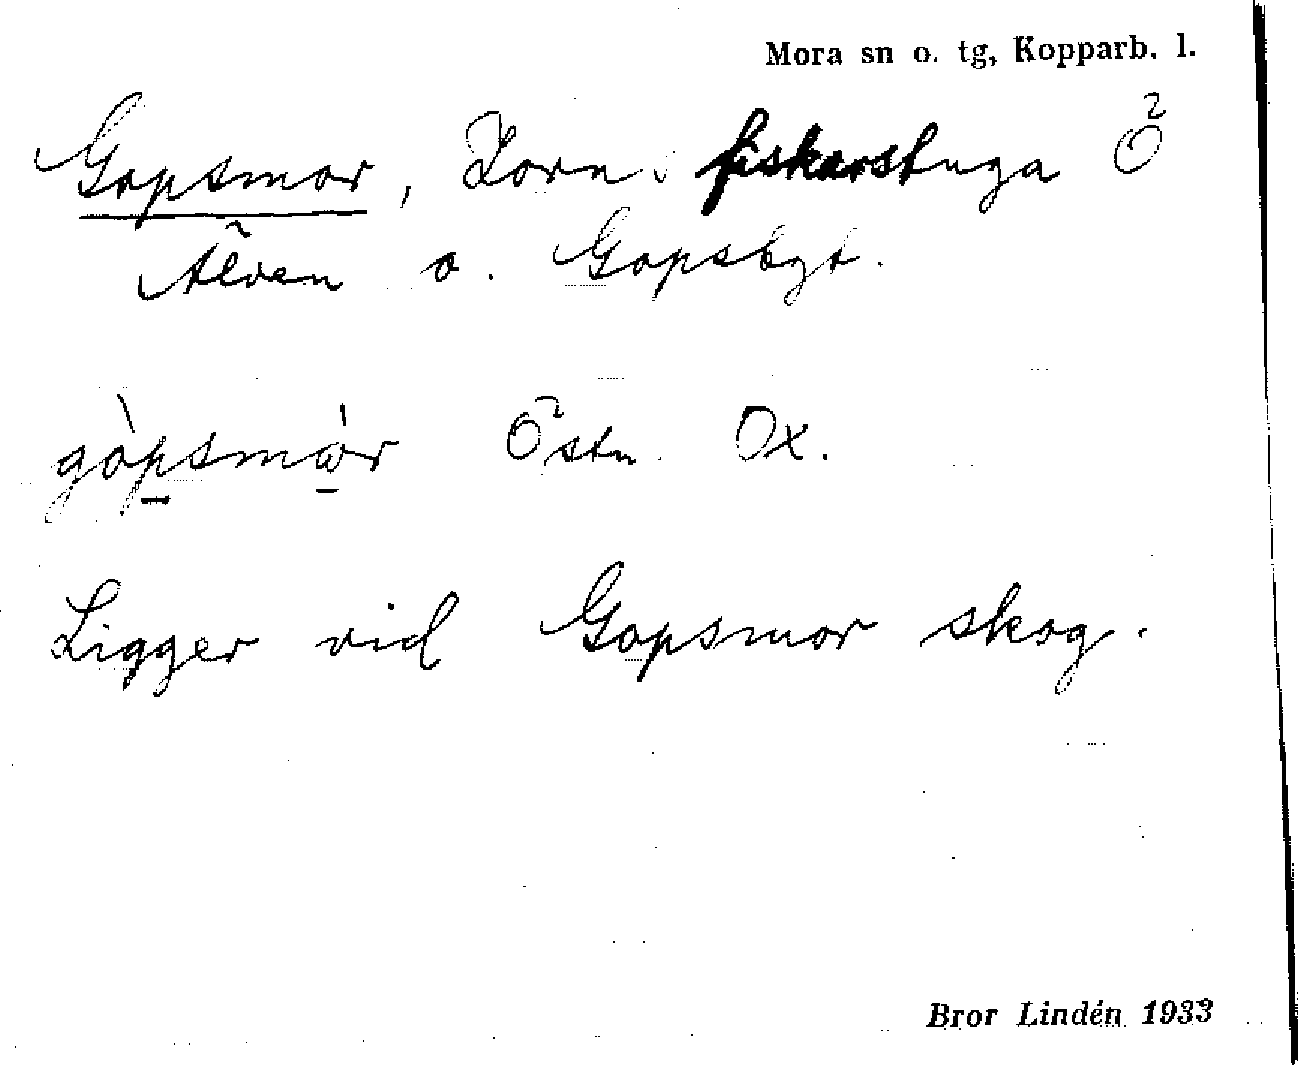 Mora sn o. tg, Kopparb. l.
Gopsmor, Zorns fiskarstuga Ö
Älven o. Gopsbyt.
gòpsmòr Östn. Ox.
Ligger vid Gopsmor skog.
Bror Lindén 1933